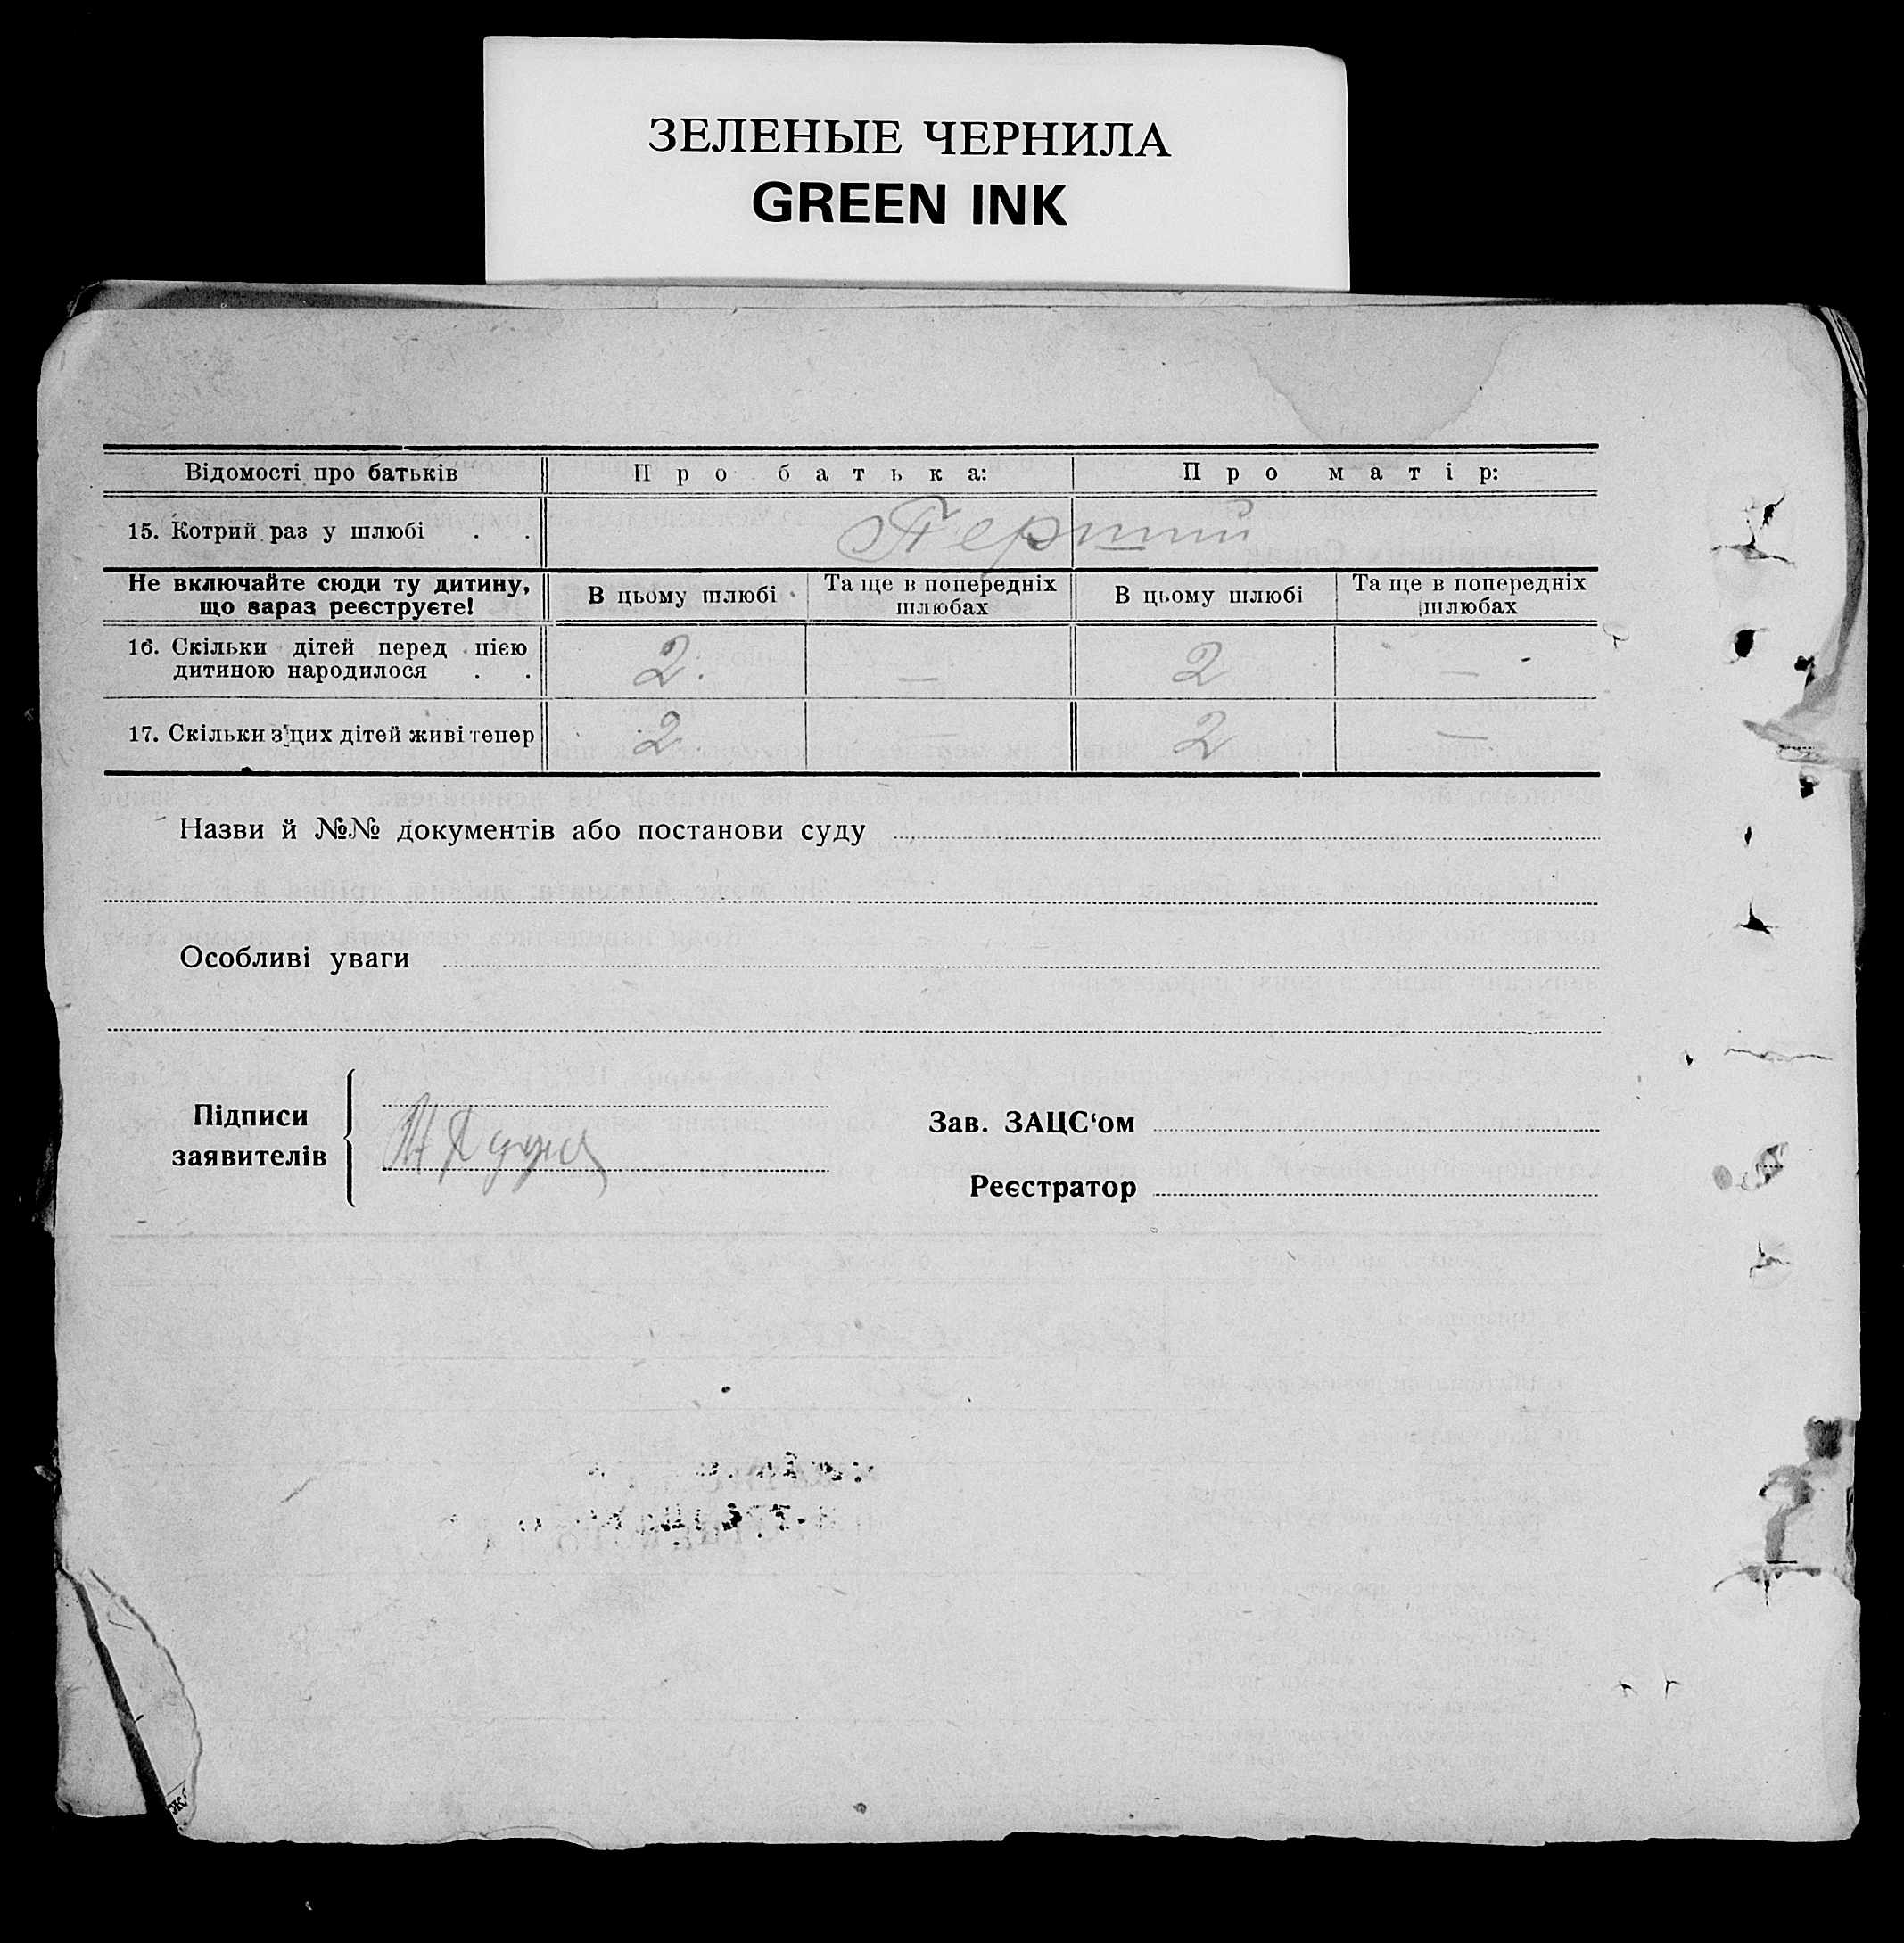 ЗЕЛЕНЫЕ ЧЕРНИЛА
GREEN INK
Відомості про батьків Про батька: Про матір:
15. Котрий раз у шлюбі . . Перший
Не включайте сюди ту дитину,
що зараз реєструєте!
В цьому шлюбі
Та ще в попередніх
шлюбах
В цьому шлюбі
Та ще в попередніх
шлюбах
16. Скільки дітей перед цією
дитиною народилося . .
2. — 2 —
17. Скільки з цих дітей живі тепер 2 — 2 —
Назви й №№ документів або постанови суду
Особливі уваги
Підписи
заявителів
Зав. ЗАЦС‘ом
Реєстратор